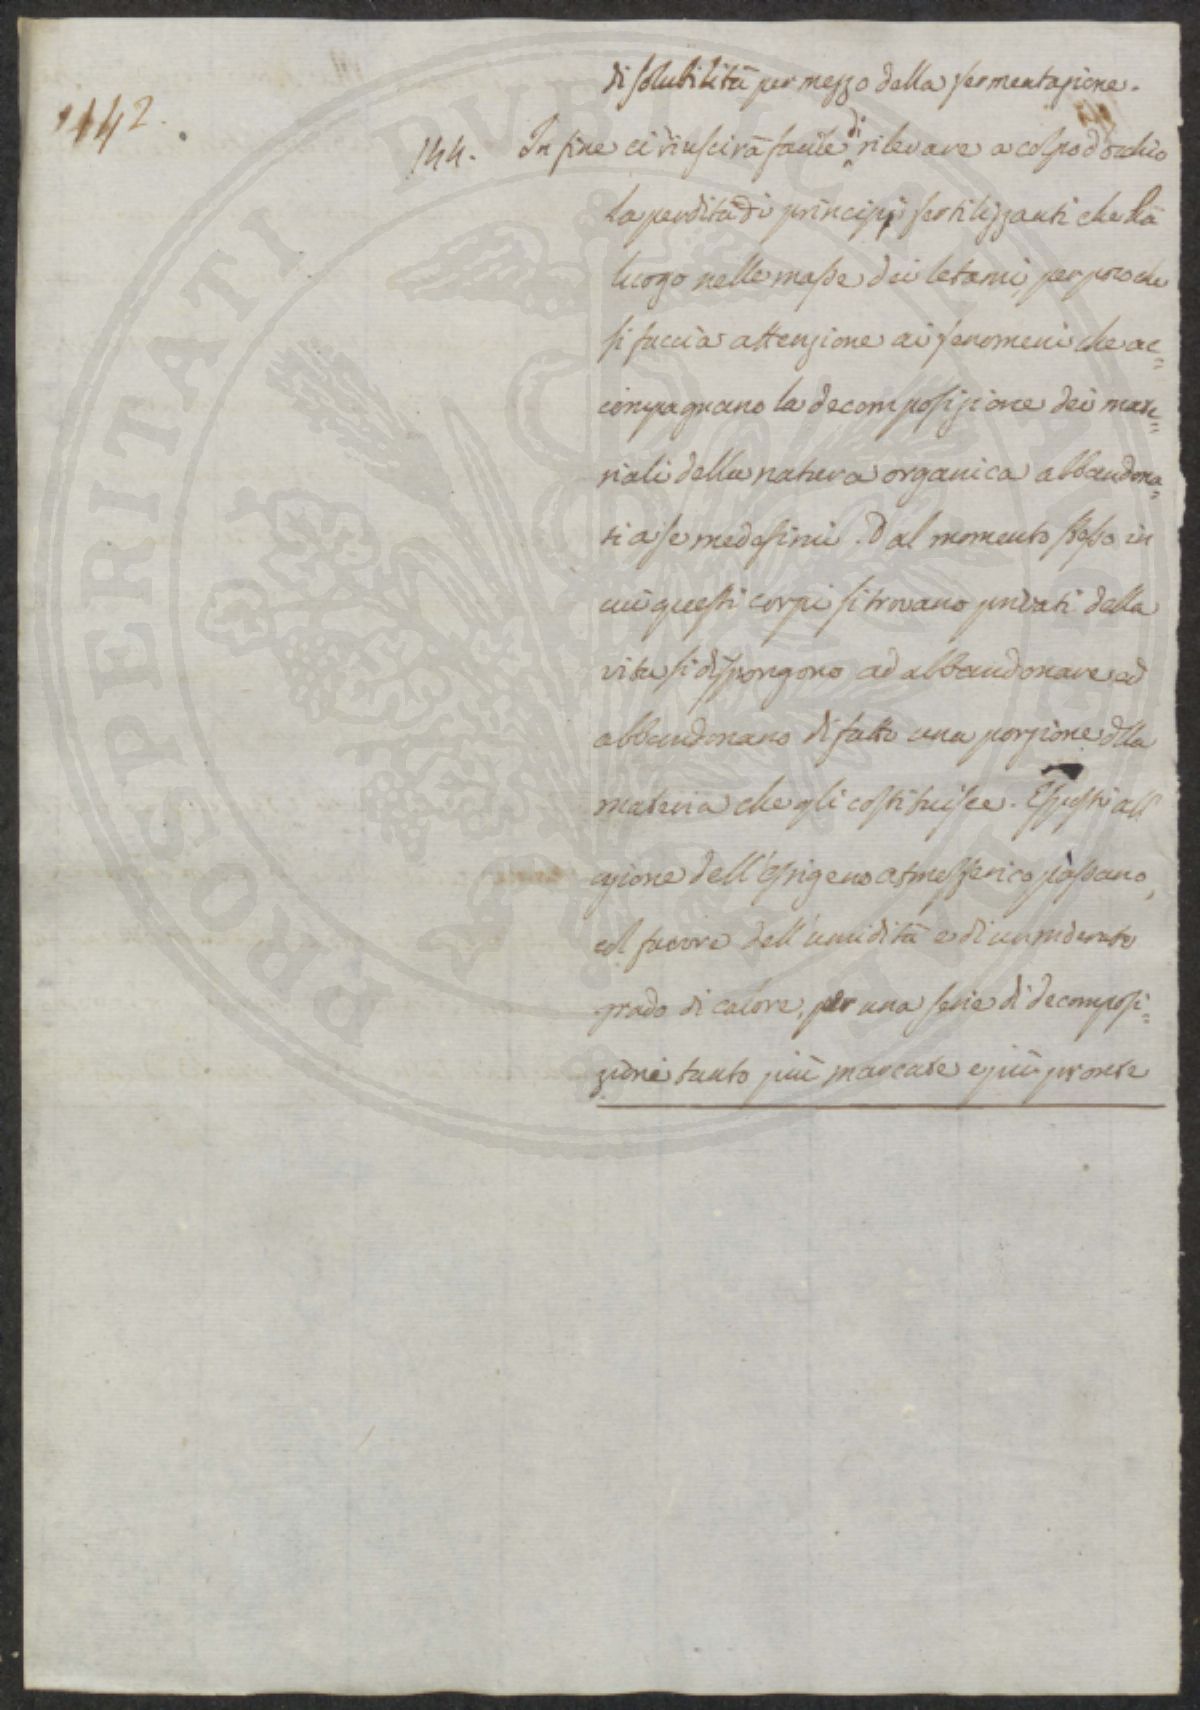 1442.
di solubilità per mezzo della fermentazione.
144. In fine ci riuscirà facile di rilevare a colpo d'occhio
la perdita di principj fertilizzanti che ha
luogo nelle masse dei letami, per poco che
si faccia attenzione ai fenomeni che ac=
compagnano la decomposizione dei mate=
riali della natura organica abbandona=
ti a se medesimi. Dal momento stesso in
cui questi corpi si trovano privati della
vita si dispongono ad abbandonare ed
abbandonano di fatto una porzione della
materia che gli costituisce. Esposti all'
azione dell'ossigeno atmosferico passano,
col favore dell'umidità e di un moderato
grado di calore, per una serie di decomposi=
zioni tanto più marcate e più pronte
PROSPERITATI PVBLICAE